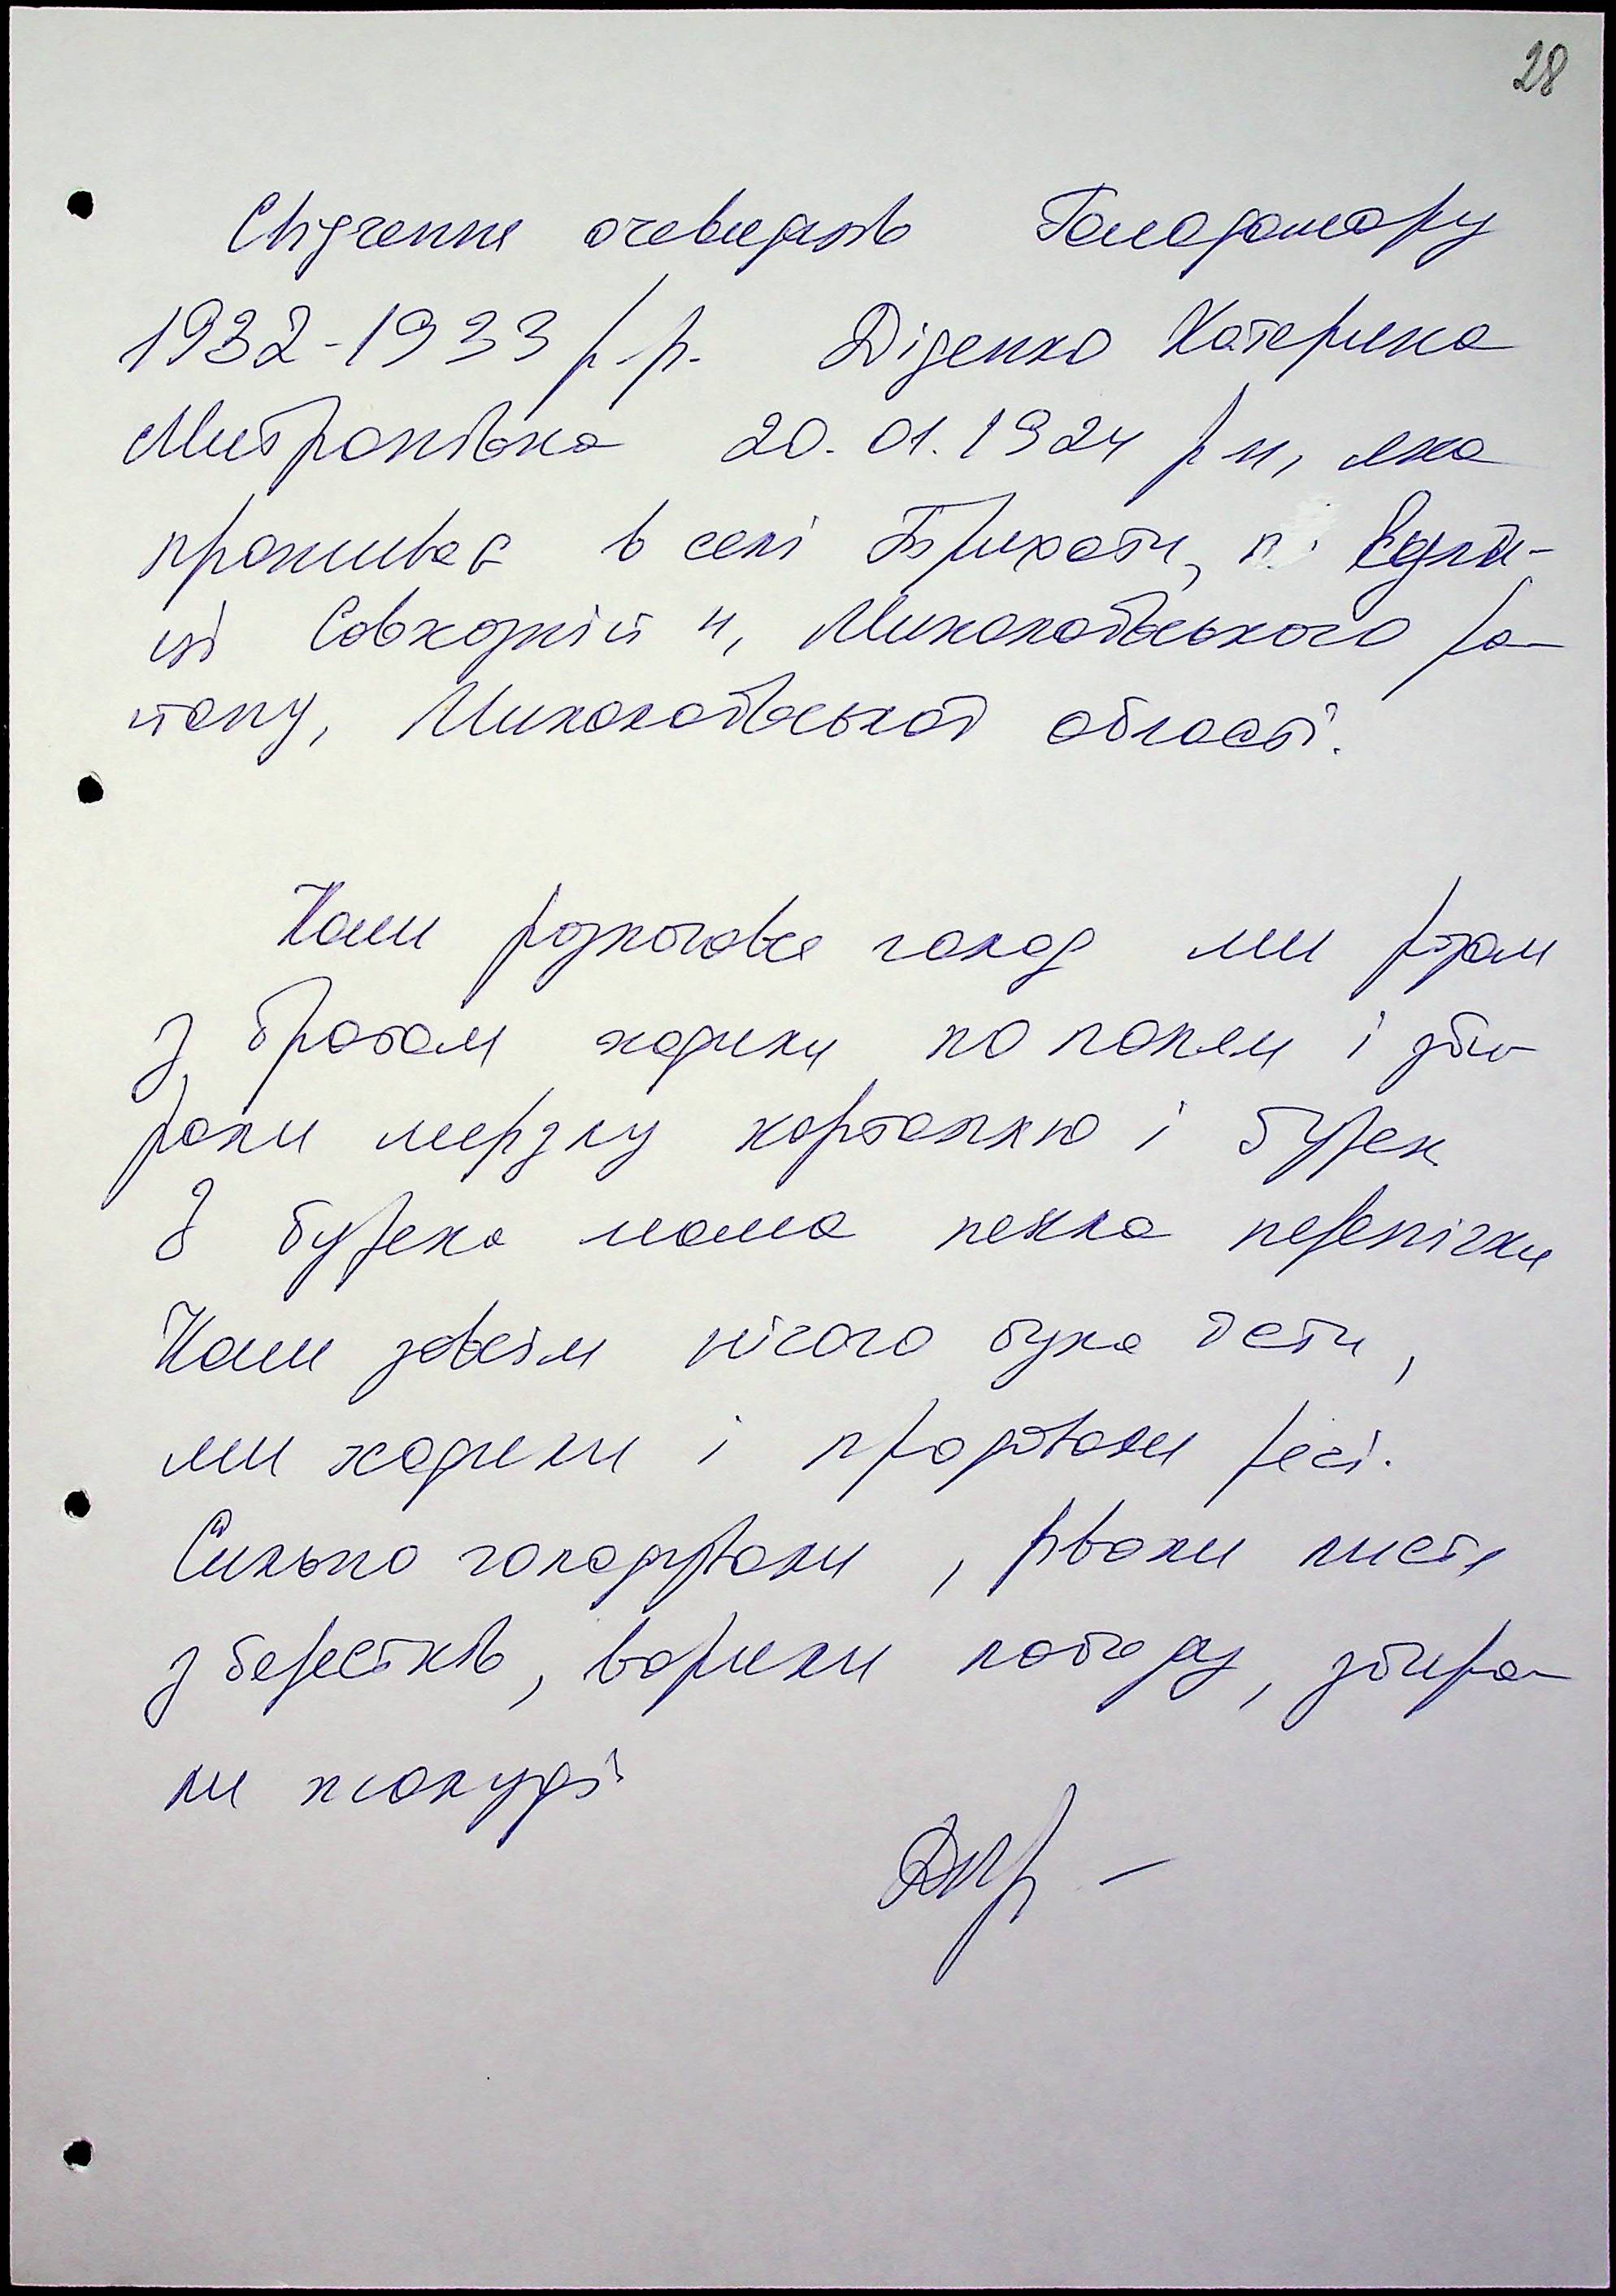 28
Свідчення очевидців Голодомору
1932-1933 р.р. Діденко Катерина
Митрофанівна 20.01.1924 р н, яка
проживає в селі Трихати,
Совхозній 4, Миколаївського ра-
йону, Миколаївської області.
Коли розпочався голод ми разом
з братом ходили по полям і зби
рали мерзлу картоплю і буряк
З буряка мама пекла перепічки
Коли зовсім нічого було їсти,
ми ходили і продавали речі.
Сильно голодували, рвали листя
з берестків, варили лободу, збира-
ли жолуді